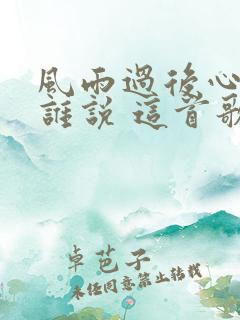 風雨過後心
誰說 這首歌
卓芭子
未经同意禁止转载